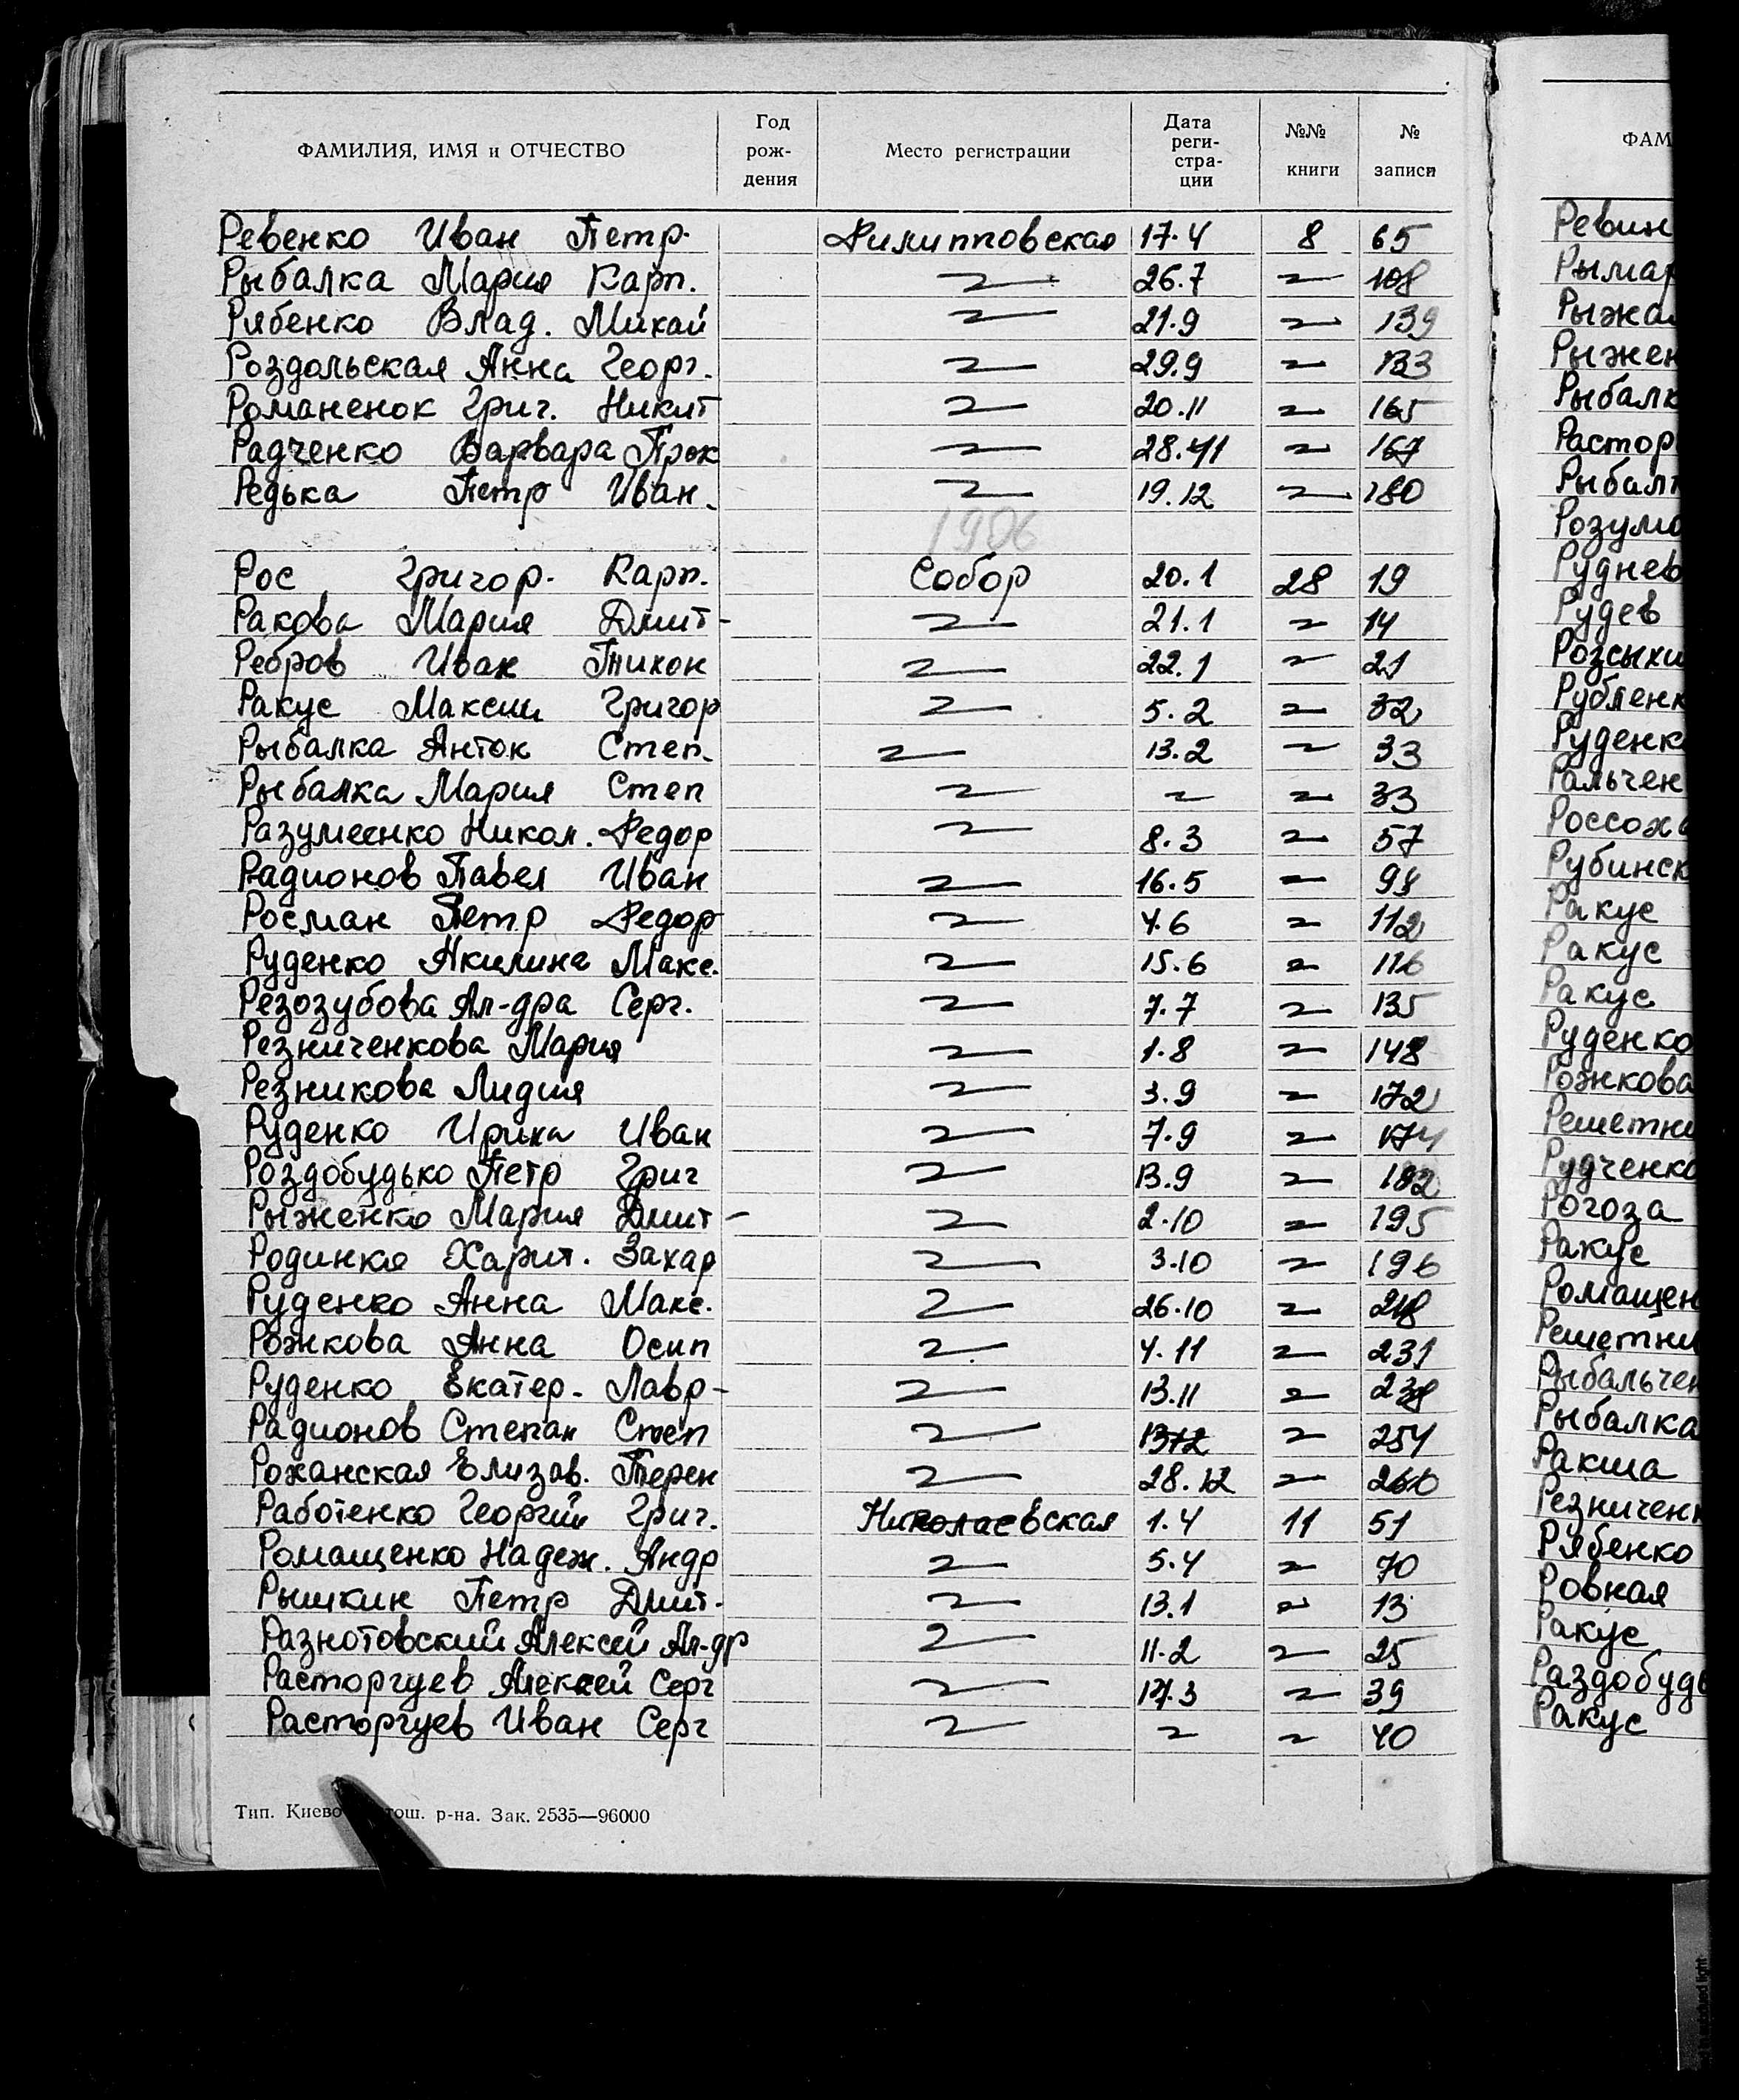 ФАМИЛИЯ, ИМЯ и ОТЧЕСТВО Год рож- дения Место регистрации Дата реги- стра- ции №№ книги № записи
Ревенко Иван Петр. Филипповская 17.4 8 65
Рыбалка Мария Карп. 26.7 108
Рябенко Влад. Михай 21.9 139
Роздольская Анна Георг. 29.9 133
Романенок Григ. Никит 20.11 165
Радченко Варвара Прок 28.11 167
Редька Петр Иван. 19.12 180
1906
Рос Григор. Карп. Собор 20.1 28 19
Ракова Мария Дмит- 21.1 14
Ребров Иван Тихон 22.1 21
Ракус Максим Григор 5.2 32
Рыбалка Антон Степ. 13.2 33
Рыбалка Мария Степ 33
Разумеенко Никол. Федор 8.3 57
Радионов Павел Иван 16.5
Росман Петр Федор 4.6 112
Руденко Акилина Макс. 15.6 116
Резозубова Ал-дра Серг. 7.7 135
Резниченкова Мария 1.8 148
Резникова Лидия 3.9 172
Руденко Ирина Иван 7.9 174
Роздобудько Петр Григ 13.9 182
Рыженко Мария Дмит- 2.10 195
Родинка Харит. Захар 3.10 196
Руденко Анна Макс. 26.10 218
Рожкова Анна Осип 4.11 231
Руденко Екатер. Лавр- 13.11 238
Радионов Степан Степ 254
Рожанская Елизав. Терен 28.12 260
Работенко Георгий Григ. Николаевская 1.4 11 51
Ромащенко Надеж. Андр 5.4 70
Рышкин Петр Дмит. 13.1 13
Разнотовский Алексей Ал-др 11.2 25
Расторгуев Алексей Серг 39
Расторгуев Иван Серг 40
Тип. Киево тош. р-на. Зак. 2535—96000
ФАМ
Ревин
Рымар
Рыжа
Рыжен
Рыбалк
Растор
Рыбал
Розум
Руднев
Рудев
Розсыхи
Рубленк
Руденк
Ральчен
Россох
Рубинск
Ракус
Ракус
Ракус
Руденко
Рожкова
Решетни
Рудченко
Рогоза
Ракус
Ромащен
Решетни
Рыбальчен
Рыбалка
Ракша
Резничен
Рябенко
Ровная
Ракус
Раздобудь
Ракус